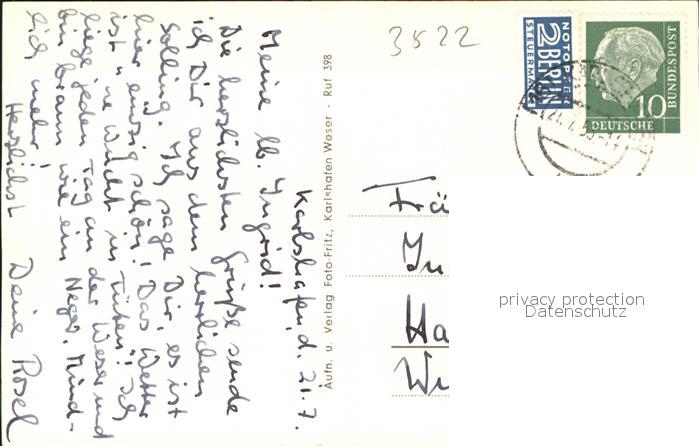 Karlshafen, d. 21.7.
Meine lb. Ingrid!
Die herzlichsten Grüße sende
ich Dir aus dem herrlichen
Solling. Ich sage Dir, es ist
hier einzig schön! Das Wetter
ist 'ne Wucht in Tüten! Ich
liege jeden Tag an der Weser und
bin braun wie ein Neger. Münd-
lich mehr!
Herzlichst Deine Rosel
Aufn. u. Verlag Foto-Fritz, Karlshafen Weser - Ruf 398
3522
NOTOPFER
2 BERLIN
STEUERMARKE
10
DEUTSCHE
BUNDESPOST
Frä
In
Ha
privacy protection
Datenschutz